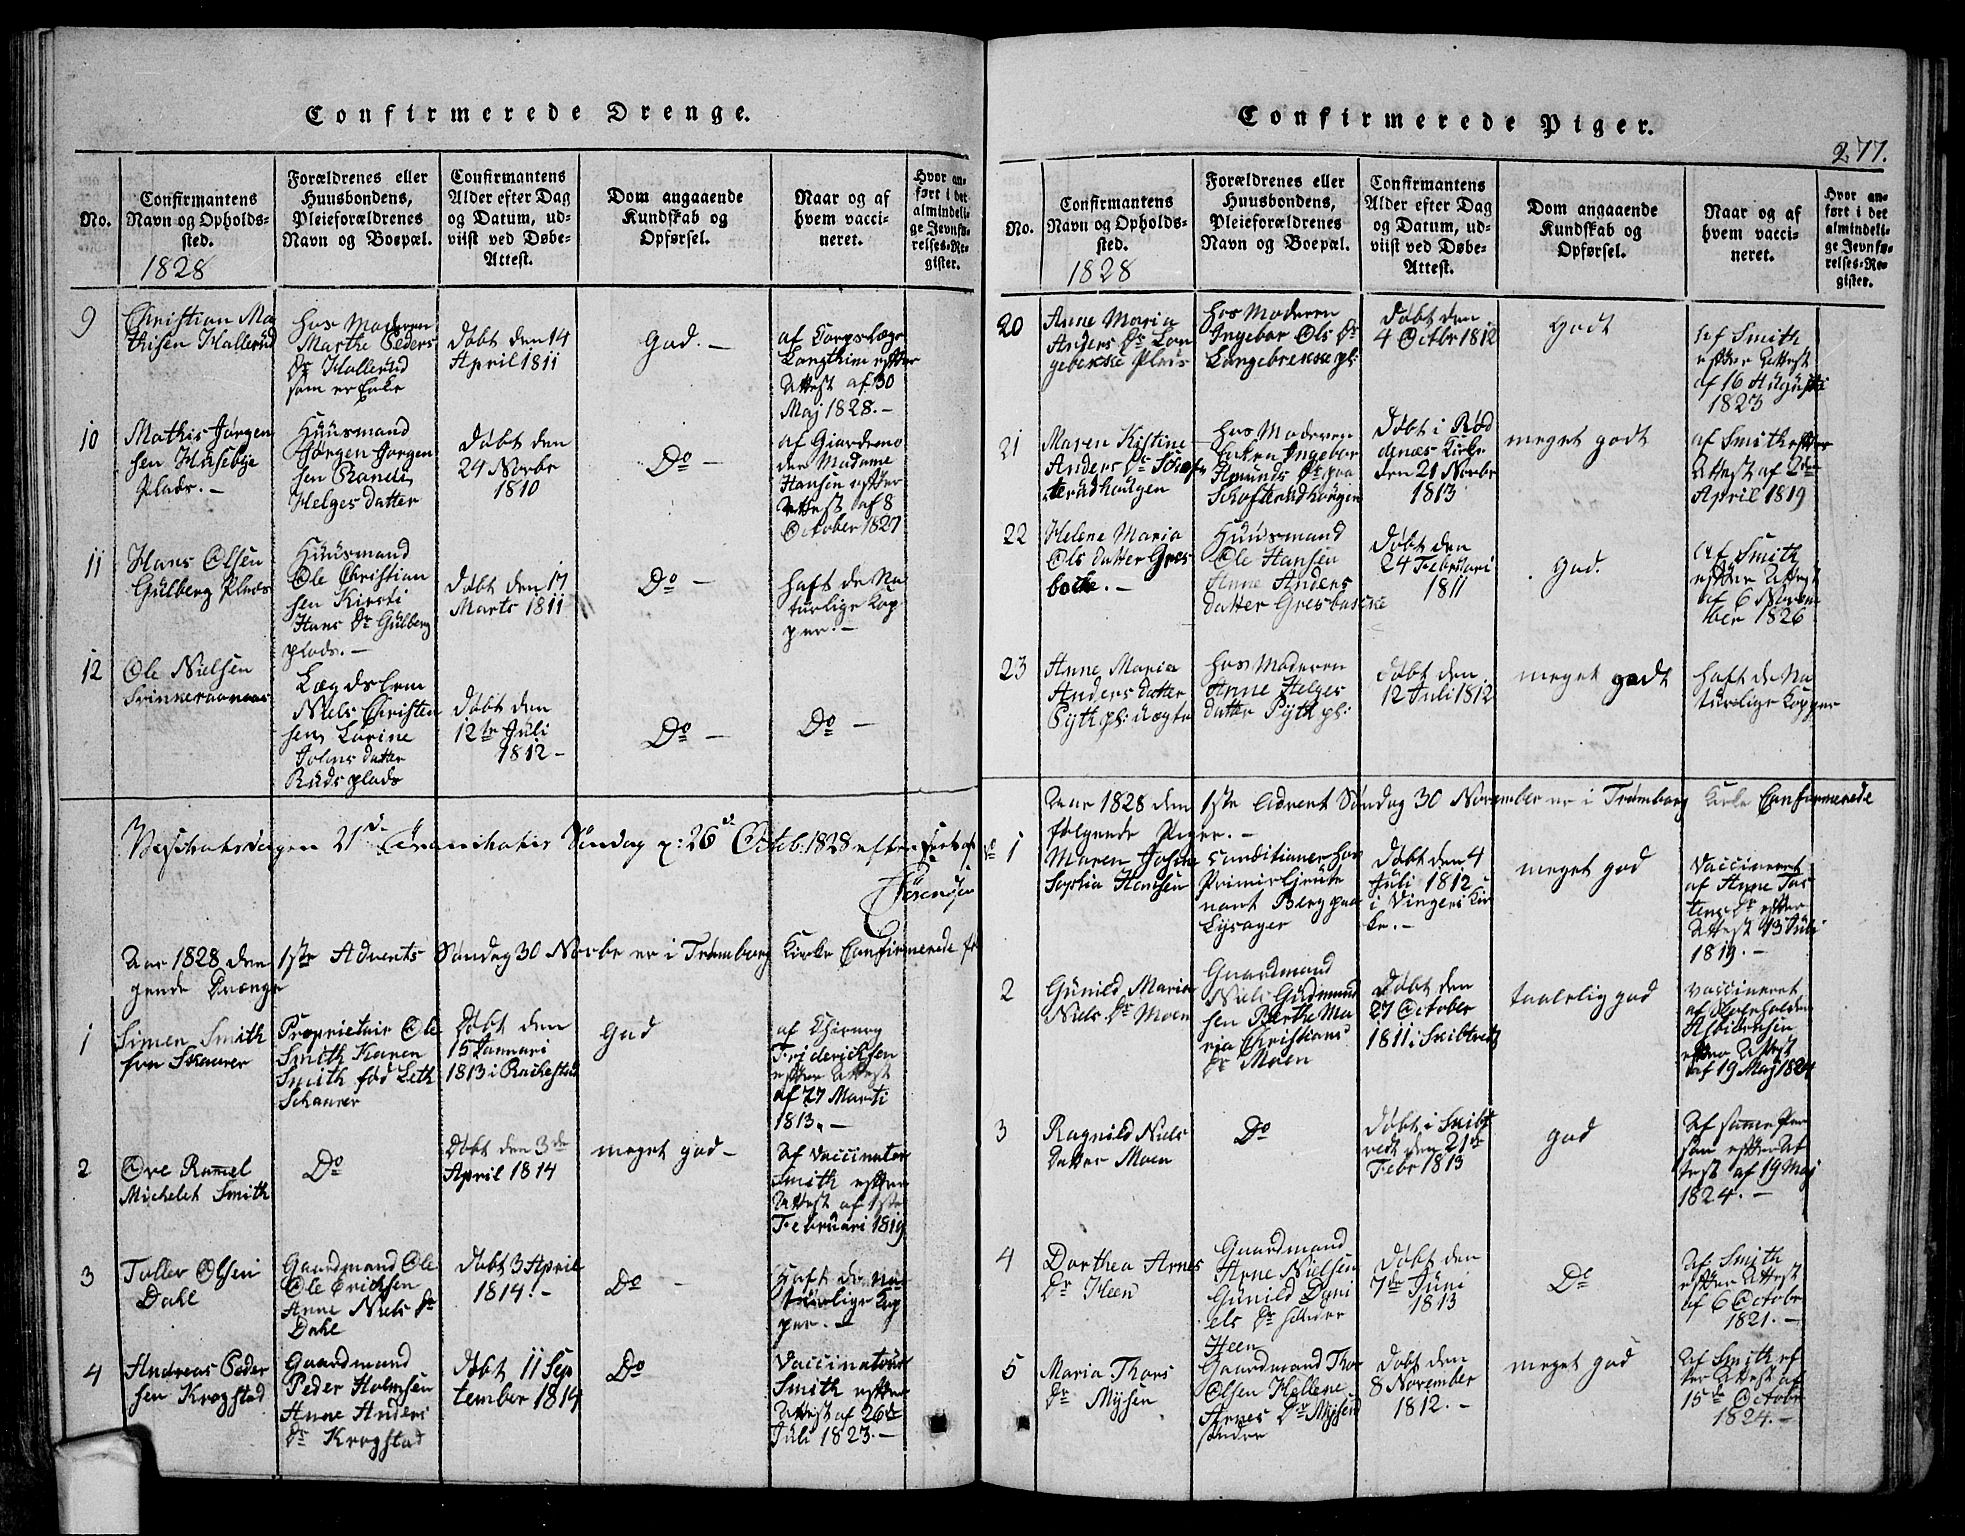 Confirmerede Drenge.
No.
Confirmantens
Navn og Opholds-
sted.
1828
Forældrenes eller
Huusbondens,
Pleieforældrenes
Navn og Boepæl.
Confirmantens
Alder efter Dag
og Datum, ud-
viist ved Døbe-
Attest.
Dom angaaende
Kundskab og
Opførsel.
Naar og af
hvem vacci-
neret.
Hvor an-
ført i det
almindeli-
ge Jevnfø-
relses-Re-
gister.
9
Christian Ma
thisen Hallerud
hos Moderen
Marthe Peders
Dr Hallerud
som er Enke
Døbt den 14
April 1811
God. -
af Corpslæge
efter
Attest af 30
Maj 1828. -
10
Mathis Jørgen
sen Huseby
Plads. -
Huusmand
Jørgen Jørgen
sen Randi
Helges datter
Døbt den
24 Novbr
1810
Do -
af
Madame
Hansen efter
Attest af 8
October 1827
11
Hans Olsen
Gulberg Plads
Huusmand
Ole Christian
sen Kirsti
Hans Dr Gulberg
plads. -
Døbt den 17
Marts 1811
Do -
haft de Na
turlige Kop
per. -
12
Ole Nielsen
Lægdslem
Niels Christen
sen Karine
Johns datter
Ruds plads
Døbt den
12te Juli
1812 -
Do -
Do -
21de Søndag p: 26de Octob. 1828
Sørensen
Aar 1828 den 1ste Advents Søndag 30 Novbr er i Trømborg Kirke Confirmerede føl
gende Drænge
1
Simen Smith
fra Skaarer
Proprietair Ole
Smith Karen
Smith fød Leth
Schaarer
Døbt den
15 Januari
1813 i Rachestad
God
af Chirurg
Friderichsen
efter Attest
af 27 Marti
1813. -
2
Ove Ramel
Michelet Smith
Do
Døbt den 3de
April 1814
meget god -
Af Vaccinatør
Smith efter
Attest af 1ste
Februari 1819
3
Toller Olsen
Dahl
Gaardmand Ole
Ole Erichsen
Anne Niels Dr
Dahl
Døbt 3 April
1814. -
Do -
Haft de na
turlige Kop
per. -
4
Andreas Peder
sen Krogstad
Gaardmand
Peder Holmsen
Anne Anders
Dr Krogstad
Døbt 11 Sep
tember 1814
Do
Vaccinatør
Smith efter
Attest af 26de
Juli 1823. -
Confirmerede Piger.
277.
No.
Confirmantens
Navn og Opholds-
sted.
1828
Forældrenes eller
Huusbondens,
Pleieforældrenes
Navn og Boepæl.
Confirmantens
Alder efter Dag
og Datum, ud-
viist ved Døbe-
Attest.
Dom angaaende
Kundskab og
Opførsel.
Naar og af
hvem vacci-
neret.
Hvor an-
ført i det
almindeli-
ge Jevnfø-
relses-Re-
gister.
20
Anne Maria
Anders Dr Lan
gebrekke Plads
Hos Moderen
Ingebor Ols Dr
Langebrekke pl:
Døbt den
4 Octbr 1812
Godt
Af Smith
efter Attest
af 16 Augusti
1823
21
Maren Kistine
Anders Dr Schof
terudhougen
Hos Moderen
Enken Ingebor
Amunds Dr paa
Schofterudhougen
Døbt i Rød
denæs Kirke
den 21 Novbr
1813
meget godt
af Smith efter
Attest af 2den
April 1819
22
Helene Maria
Ols datter Gres
Huusmand
Ole Hansen
Anne Anders
datter
Døbt den
24 Februari
1811
God.
Af Smith
efter Attest
af 6 Novem
ber 1826
23
Anne Maria
Anders datter
Pyth pl:
Hos Moderen
Anne Helges
datter Pyth pl:
Døbt den
12 Juli 1812
meget godt
haft de Na
turlige Kopper
Aar 1828 den 1ste Advent Søndag 30 November er i Trømborg Kirke Confirmerede
følgende Piger. -
1
Maren Josine
Sophia Hansen
Conditioner hos
Premierlieute
nant Berg paa
Lysager
Døbt den 4
Juli 1812
i Vingers Kir
ke. -
meget god
Vaccineret
af Anne Tos
tens Dr efter
Attest 13 Juli
1819. -
2
Gunild Maria
Niels Dr Moen
Gaardmand
Niels Gudmund
sen Berthe Ma
ria Christians
Dr Moen
Døbt den
27 October
1811 i Skibtvedt
taalelig god
Vaccineret
af
efter Attest
af 19 Maj 1824
3
Ragnild Niels
Datter Moen
Do
Døbt i Skibt
vedt den 21de
Febr 1813
God
Af samme Per
son efter At
test af 19 Maj
1824. -
4
Dorthea Arnes
Dr Heen
Gaardmand
Arne Nielsen
Gunild Dyni
els Dr søndre
Heen
Døbt den
7de Juni
1813
Do
Af Smith
efter Attest
af 6 Octobr
1821. -
5
Maria Thors
Dr Mysen
Gaardmand Thor
Olsen Hellene
Arnes Dr Mysen
søndre
Døbt den
8 November
1812. -
meget god
Af Smith ef
ter Attest af
15de Octobr
1824. -